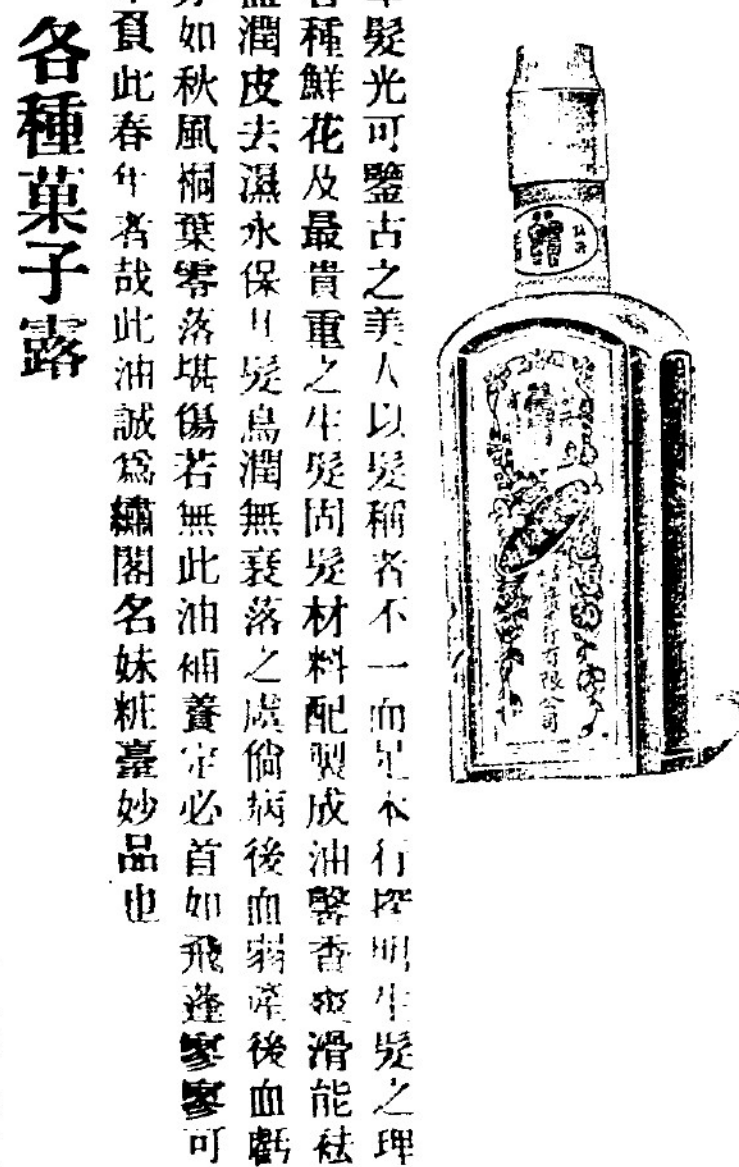 髮光可鑒古之美人以髮稱者不一而足本行探明生髮之理
種鮮花及最貴重之生髮固髮材料配製成油馨香爽滑能祛
潤皮去濕永保月髮烏潤無衰落之虞倘病後血弱產後血虧
如秋風桐葉零落堪傷若無此油補養定必首如飛蓬寥寥可
負此春年者哉此油誠爲繡閣名妹粧臺妙品也
各種菓子露
行有限公司